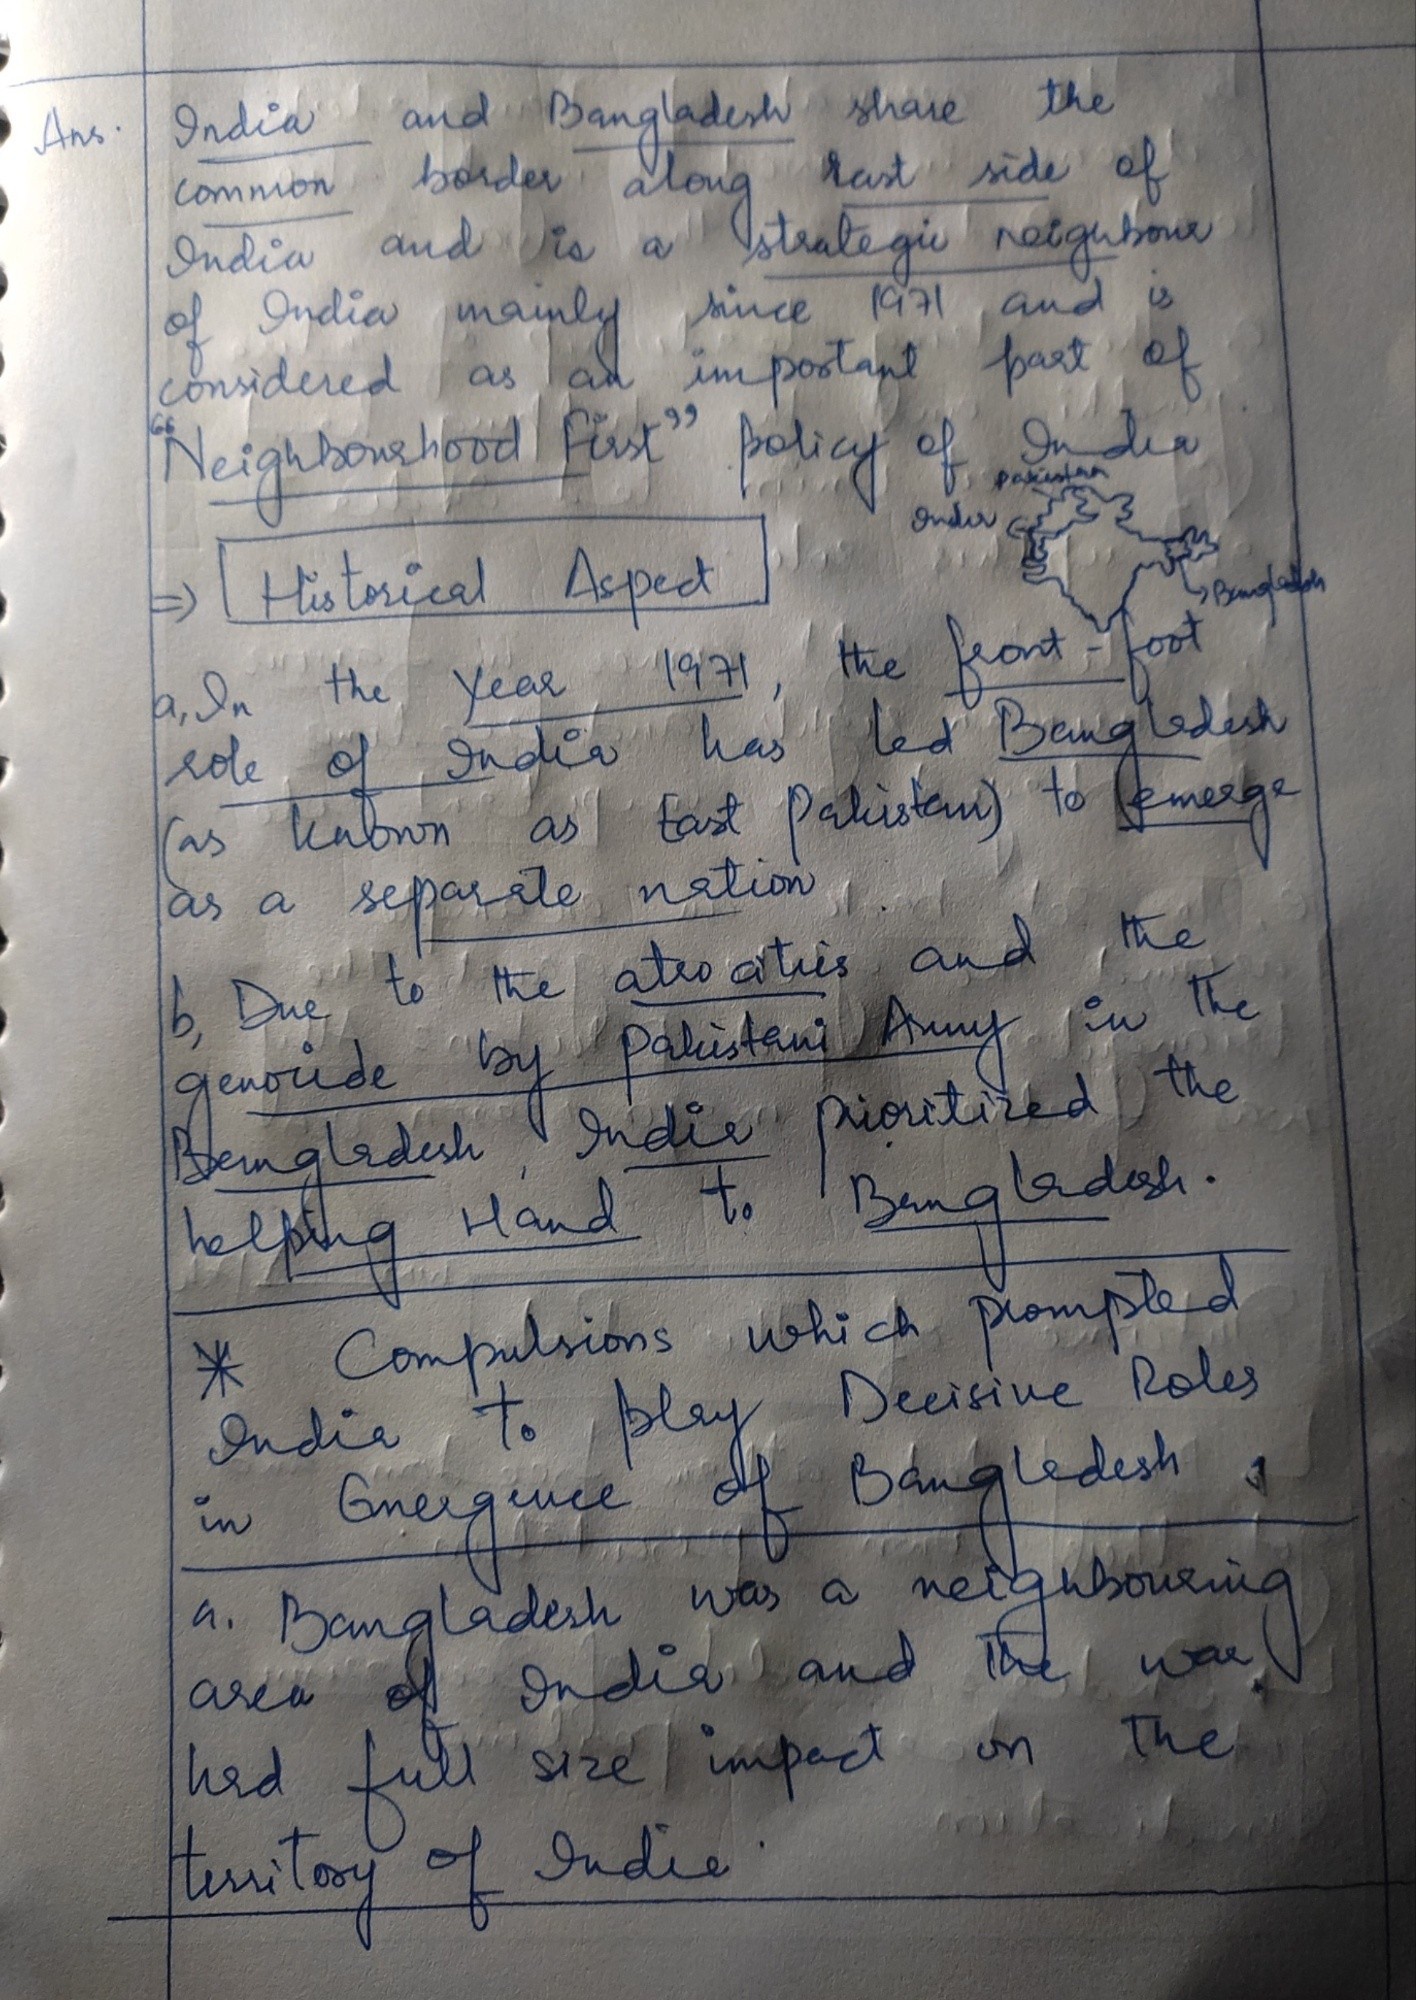 Ans. India and Bangladesh share the
common border along East side of
India and is a strategic neighbour
of India mainly since 1971 and is
considered as an important part of
"Neighbourhood First" policy of India
Pakistan
India
Bangladesh
=> Historical Aspect
a, In the Year 1971, the front-foot
role of India has led Bangladesh
(as known as East Pakistan) to emerge
as a separate nation
b, Due to the atrocities and the
genocide by Pakistani Army in the
Bangladesh, India prioritized the
helping Hand to Bangladesh.
* Compulsions which prompted
India to play Decisive Roles
in Emergence of Bangladesh
a. Bangladesh was a neighbouring
area of India and the war
had full size impact on the
territory of India.